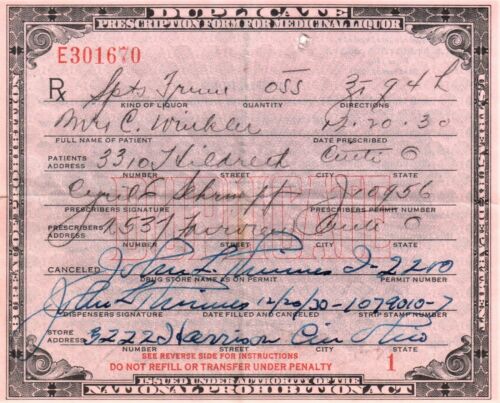 DUPLICATE
PRESCRIPTION FORM FOR MEDICINAL LIQUOR
E301670
Rx Spts Frumi
KIND OF LIQUOR QUANTITY DIRECTIONS
Mrs C. Winkler 12-20-30
FULL NAME OF PATIENT DATE PRESCRIBED
PATIENTS ADDRESS 3310 Hildred Cinti O
NUMBER STREET CITY STATE
Cyril J10956
DUPLICATE
PRESCRIBERS SIGNATURE PRESCRIBERS PERMIT NUMBER
PRESCRIBERS ADDRESS 2537 Cinti O
NUMBER STREET CITY STATE
CANCELED John L. Thinnes I-2200
DRUG STORE NAME AS ON PERMIT PERMIT NUMBER
John L Thinnes 12/20/30-1079010-7
DISPENSERS SIGNATURE DATE FILLED AND CANCELED STRIP STAMP NUMBER
STORE ADDRESS 3222 Harrison Cin Ohio
NUMBER STREET CITY STATE
SEE REVERSE SIDE FOR INSTRUCTIONS
DO NOT REFILL OR TRANSFER UNDER PENALTY 1
ISSUED UNDER AUTHORITY OF THE
NATIONAL PROHIBITION ACT